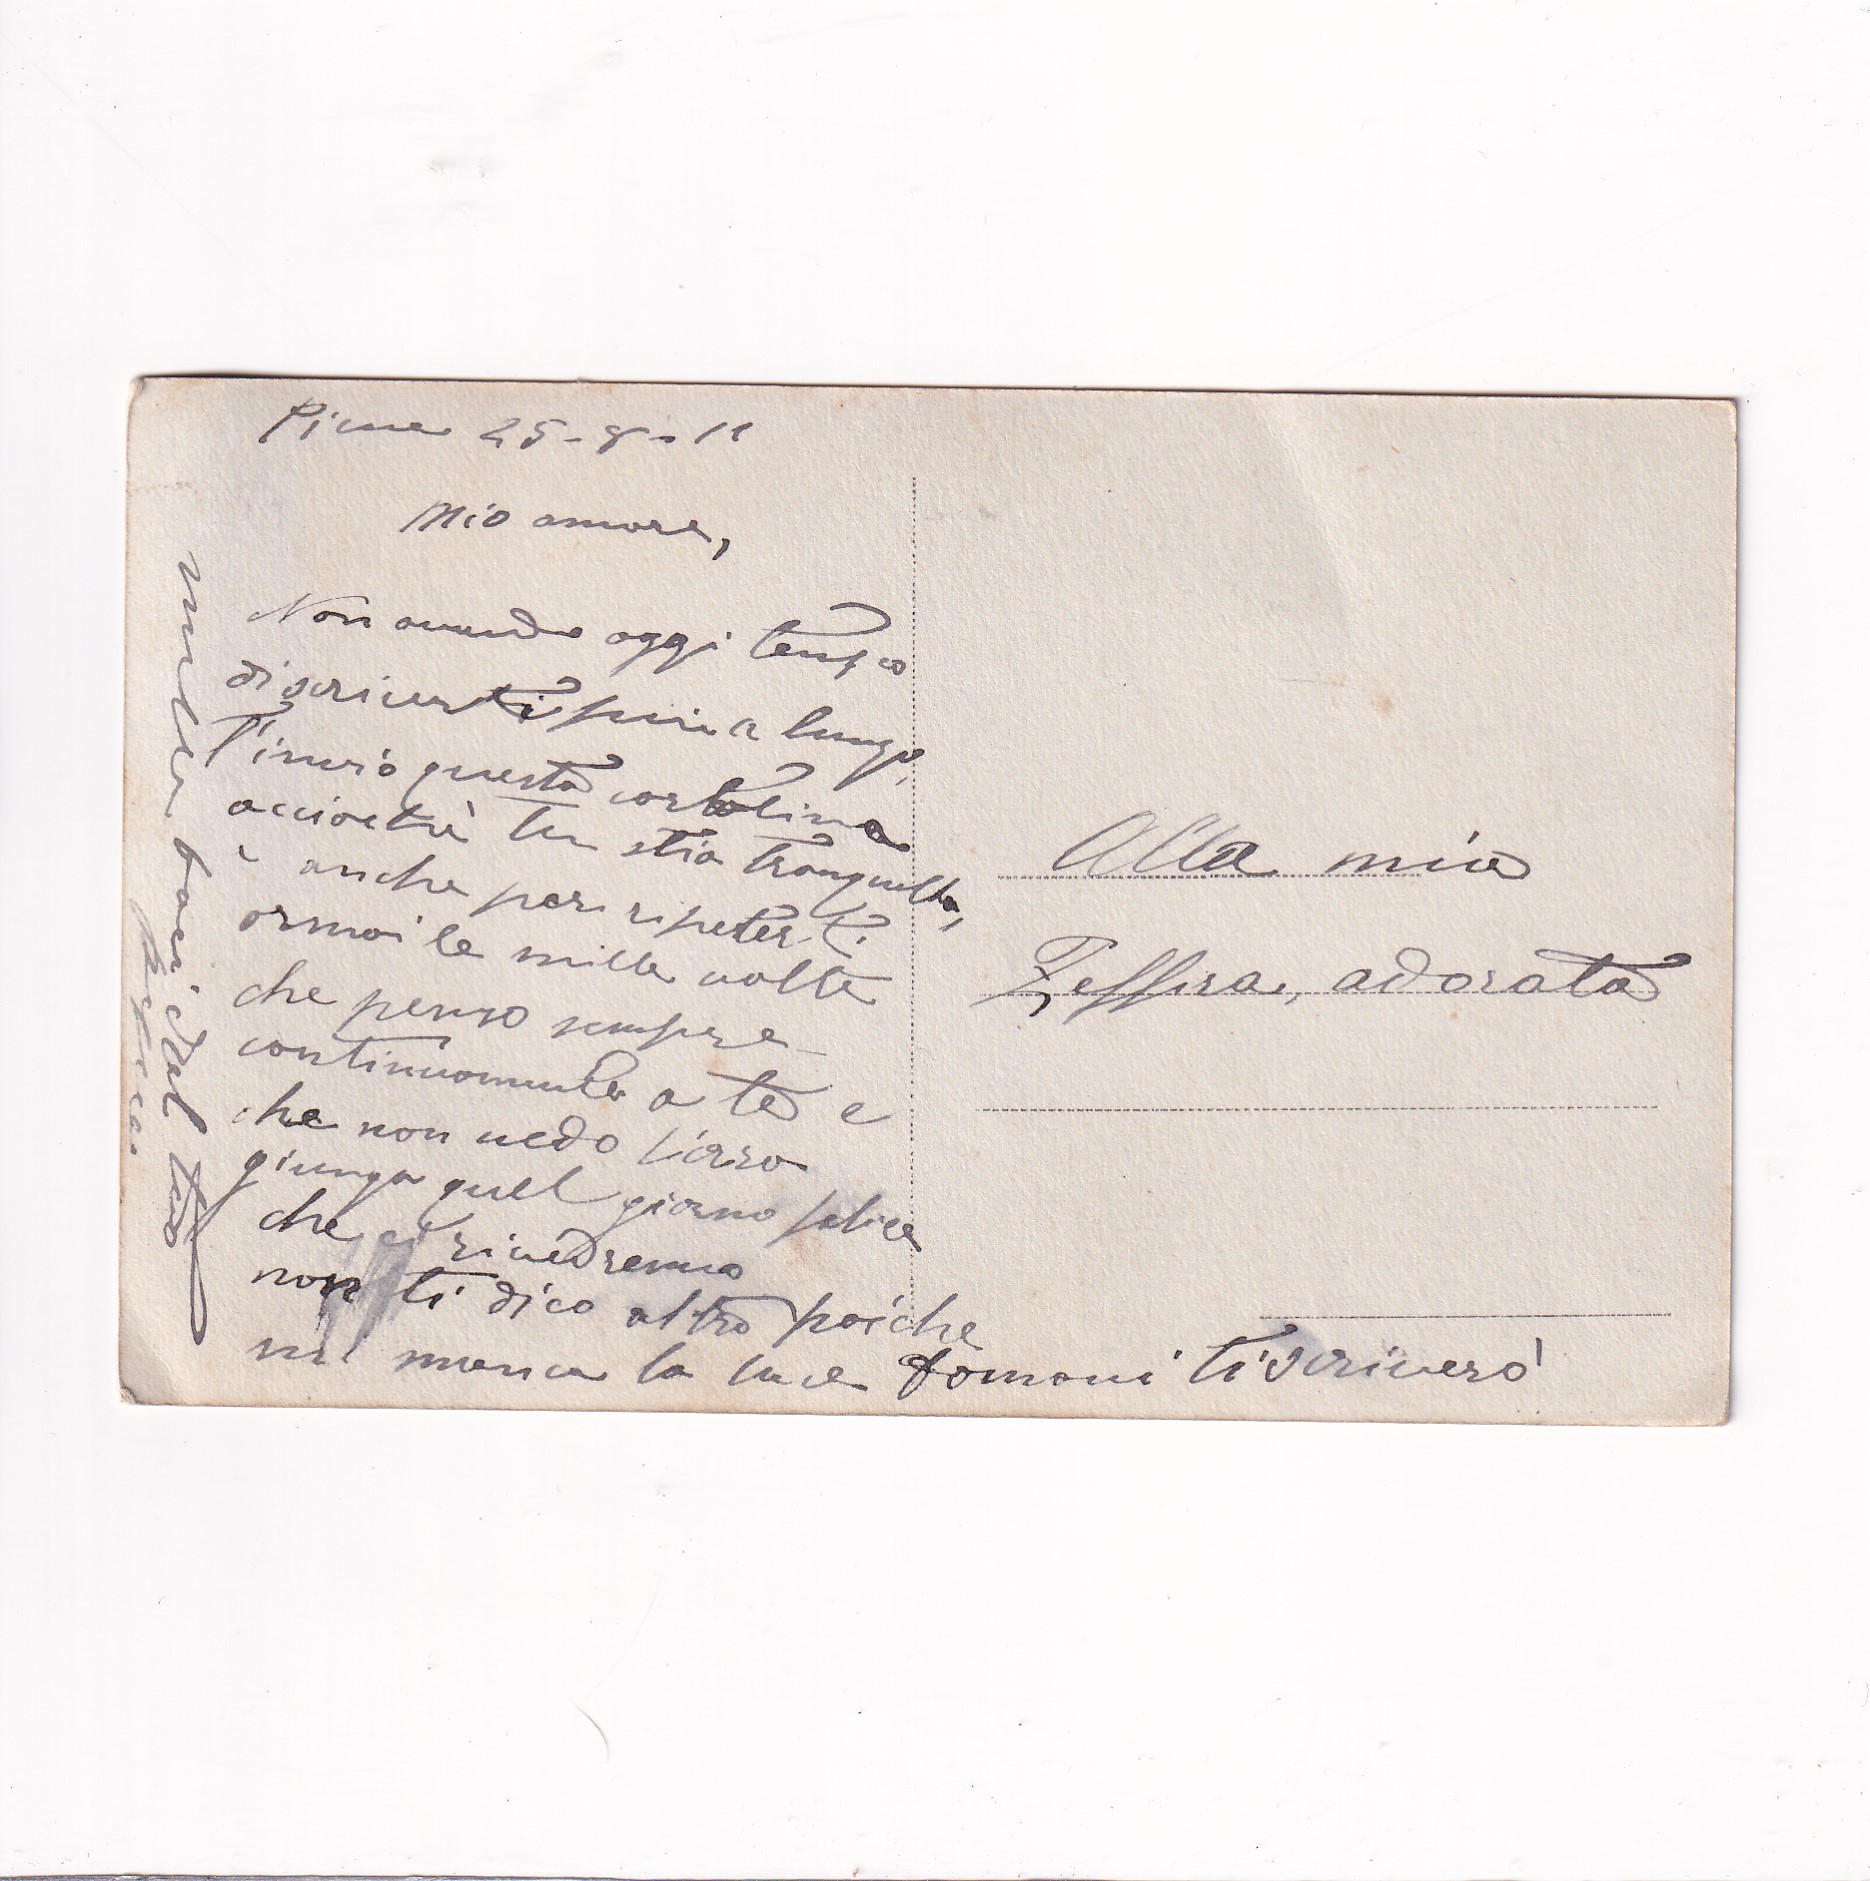 25-8-11
Mio amore,
Non avendo oggi tempo
di scriverti più a lungo,
T'invio questa cartolina
acciocchè tu stia tranquilla,
e anche per ripeterti
ormai le mille volte
che penso sempre
continuamente a te e
che non vedo l'ora
giunga quel giorno felice
che ci rivedremo
non ti dico altro poiche
mi manca la luce domani ti scriverò
mille baci dal tuo
Alla mia
Zeffira, adorata